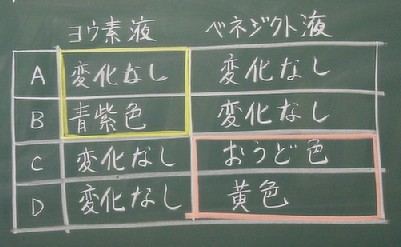 ヨウ素液 ベネジクト液
A 変化なし 変化なし
B 青紫色 変化なし
C 変化なし おうど色
D 変化なし 黄色